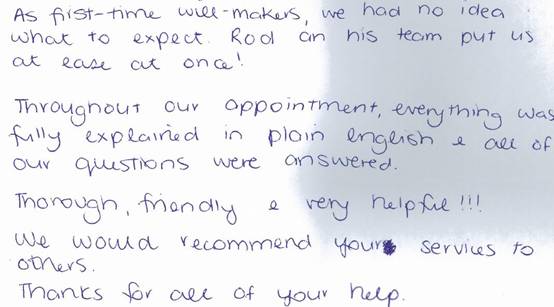 As first-time will-makers, we had no idea
what to expect. Rod an his team put us
at ease at once!
Throughout our appointment, everything was
fully explained in plain english & all of
our questions were answered.
Thorough, friendly & very helpful!!!
We would recommend your services to
others.
Thanks for all of your help.